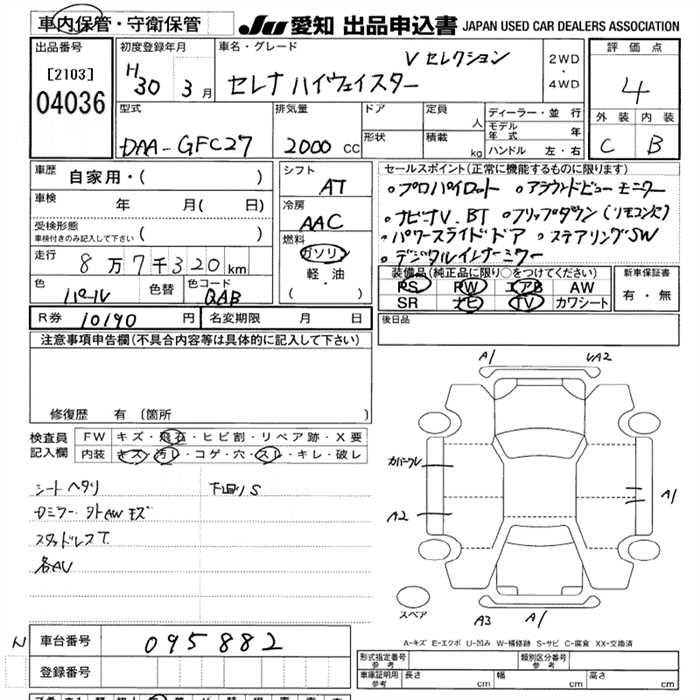 車内保管・守衛保管
JU 愛知 出品申込書 JAPAN USED CAR DEALERS ASSOCIATION
出品番号
[2103]
04036
初度登録年月
H30 3月
車名・グレード
Vセレクション
セレナ ハイウェイスター
2WD
・
4WD
評価点
4
外装 内装
C B
型式
DAA-GFC27
排気量
2000 CC
ドア
形状
定員 人
積載 kg
ディーラー・並行
モデル年式 年
ハンドル 左・右
車歴
自家用・( )
車検 年 月( 日)
受検形態
車検付きのみ記入して下さい ( )
走行
8万7千320km
色
パール
色替
色コード
QAB
シフト
AT
冷房
AAC
燃料
ガソリン
軽・油
( )
セールスポイント(正常に機能するものに限ります)
・プロパイロット ・アラウンドビューモニター
・ナビナV.BT ・フリップダウン(リモコン欠)
・パワースライドドア ・ステアリングSW
・デジタルインナーミラー
装備品(純正品に限り○をつけてください)
PS PW エアB AW
SR ナビ TV カワシート
新車保証書
有・無
R券 10190 円
名変期限 月 日
後日品
注意事項申告欄(不具合内容等は具体的に記入して下さい)
修復歴 有 (箇所 )
検査員記入欄
FW キズ・飛石・ヒビ割・リペア跡・X要
内装 キズ・汚レ・コゲ・穴・スレ・キレ・破レ
シートヘタリ 下廻りS
スタッドレスT.
各AU
A1 UA2
カバーワレ
A2
A1
スペア
A3 A1
A-キズ E-エクボ U-凹み W-補修跡 S-サビ C-腐食 XX-交換済
N
車台番号 095882
登録番号
形式指定番号
参考
類別区分番号
参考
車庫証明用
参考
長さ cm 幅 cm 高さ cm